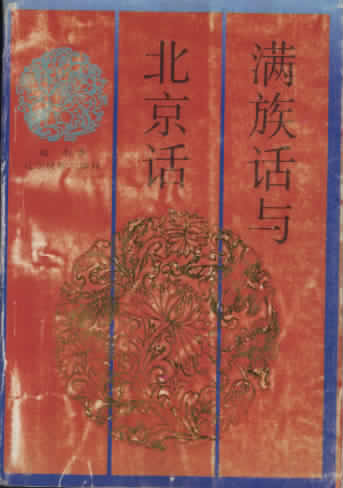 满族话与
北京话